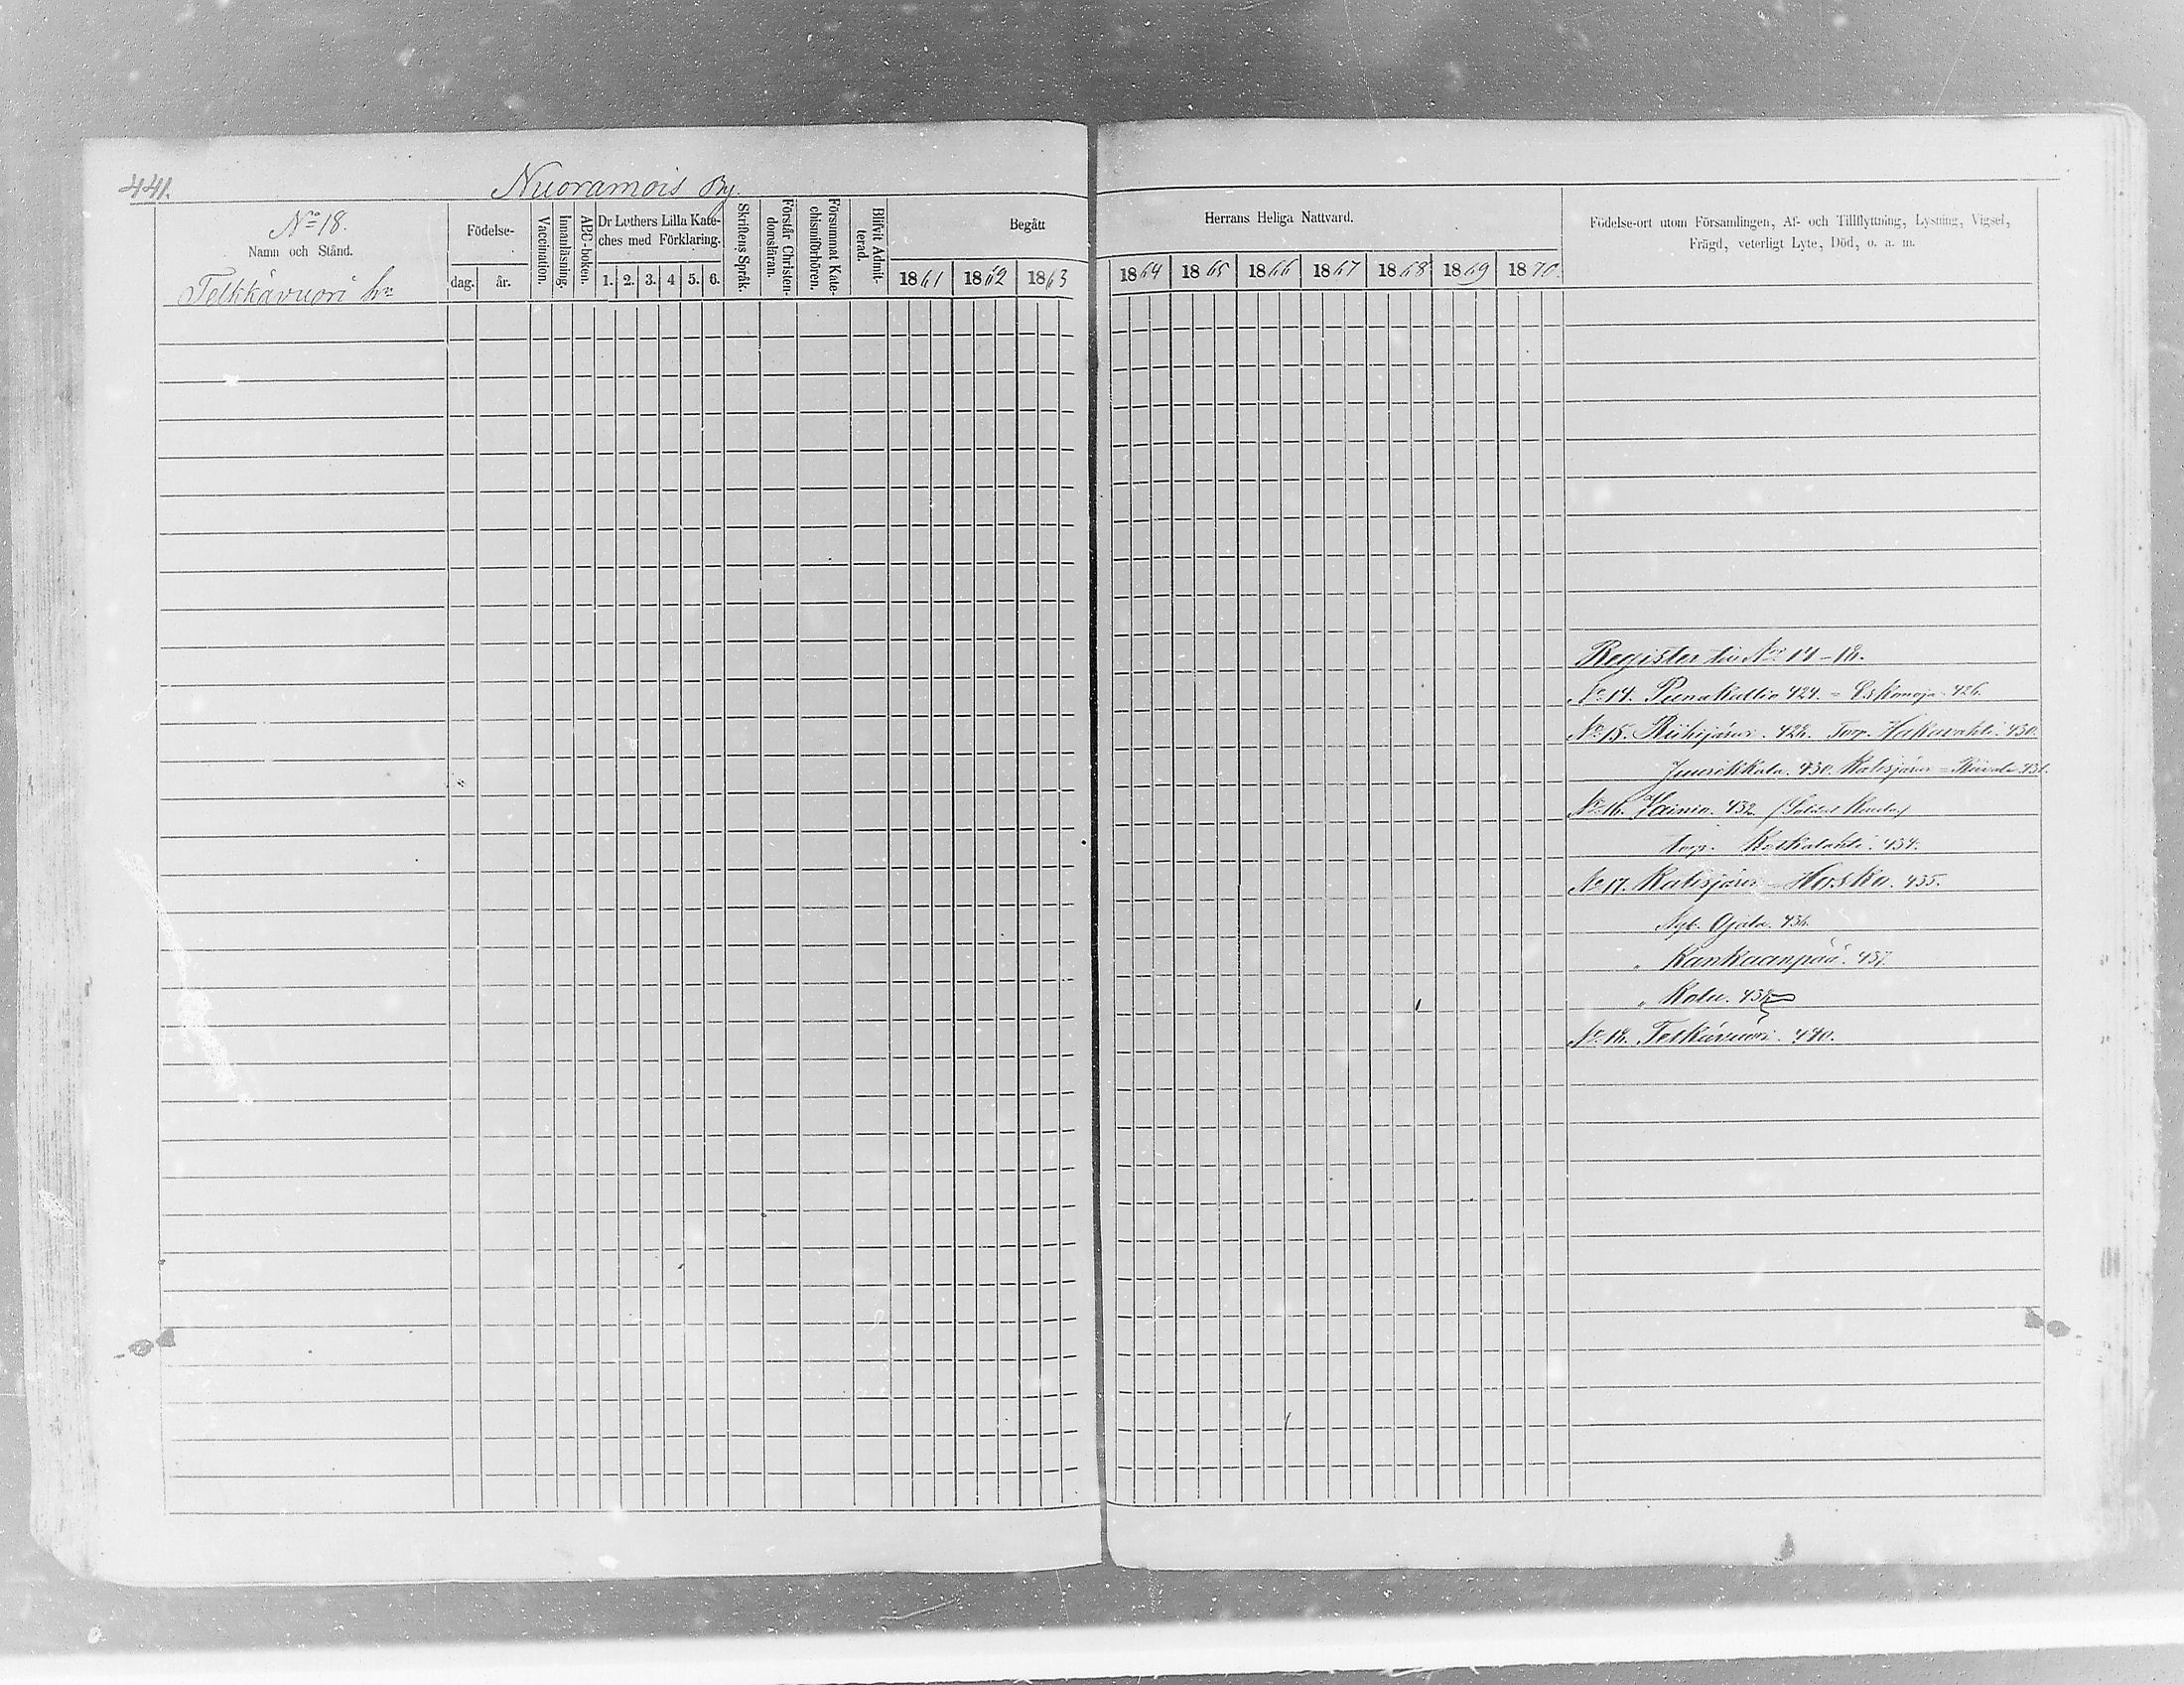 441.
Nuoramois By.
No 18.
Namn och Stånd.
Telkkävuori hn
Födelse-
dag. år.
Vaccination.
Innanläsning.
ABC-boken.
Dr Luthers Lilla Kate-
ches med Förklaring.
1. 2. 3. 4 5. 6.
Skriftens Språk.
Förstår Christen-
domsläran.
Försummat Kate-
chismiförhören.
Blifvit Admit-
terad.
Begått
1861 1862 1863
Herrans Heliga Nattvard.
1864 1865 1866 1867 1868 1869 1870.
Födelse-ort utom Församlingen, Af- och Tillflyttning, Lysning, Vigsel,
Frägd, veterligt Lyte, Död, o. a. m.
Register No 14-18.
No 14. Punakallio 424. = Eskonoja 426.
No 15. Riihijärvi. 428. Torp. Hakavahti 430.
430. Kalisjärvi = 431.
No 16. Hainio. 432. (Soldat
torp. Koskalahti. 434.
No 17. Kalisjärvi = Hyska. 435.
Nyb. Ojala. 436.
" Kankaanpää. 437.
" Kolu. 438
No 18. Telkävuori. 440.